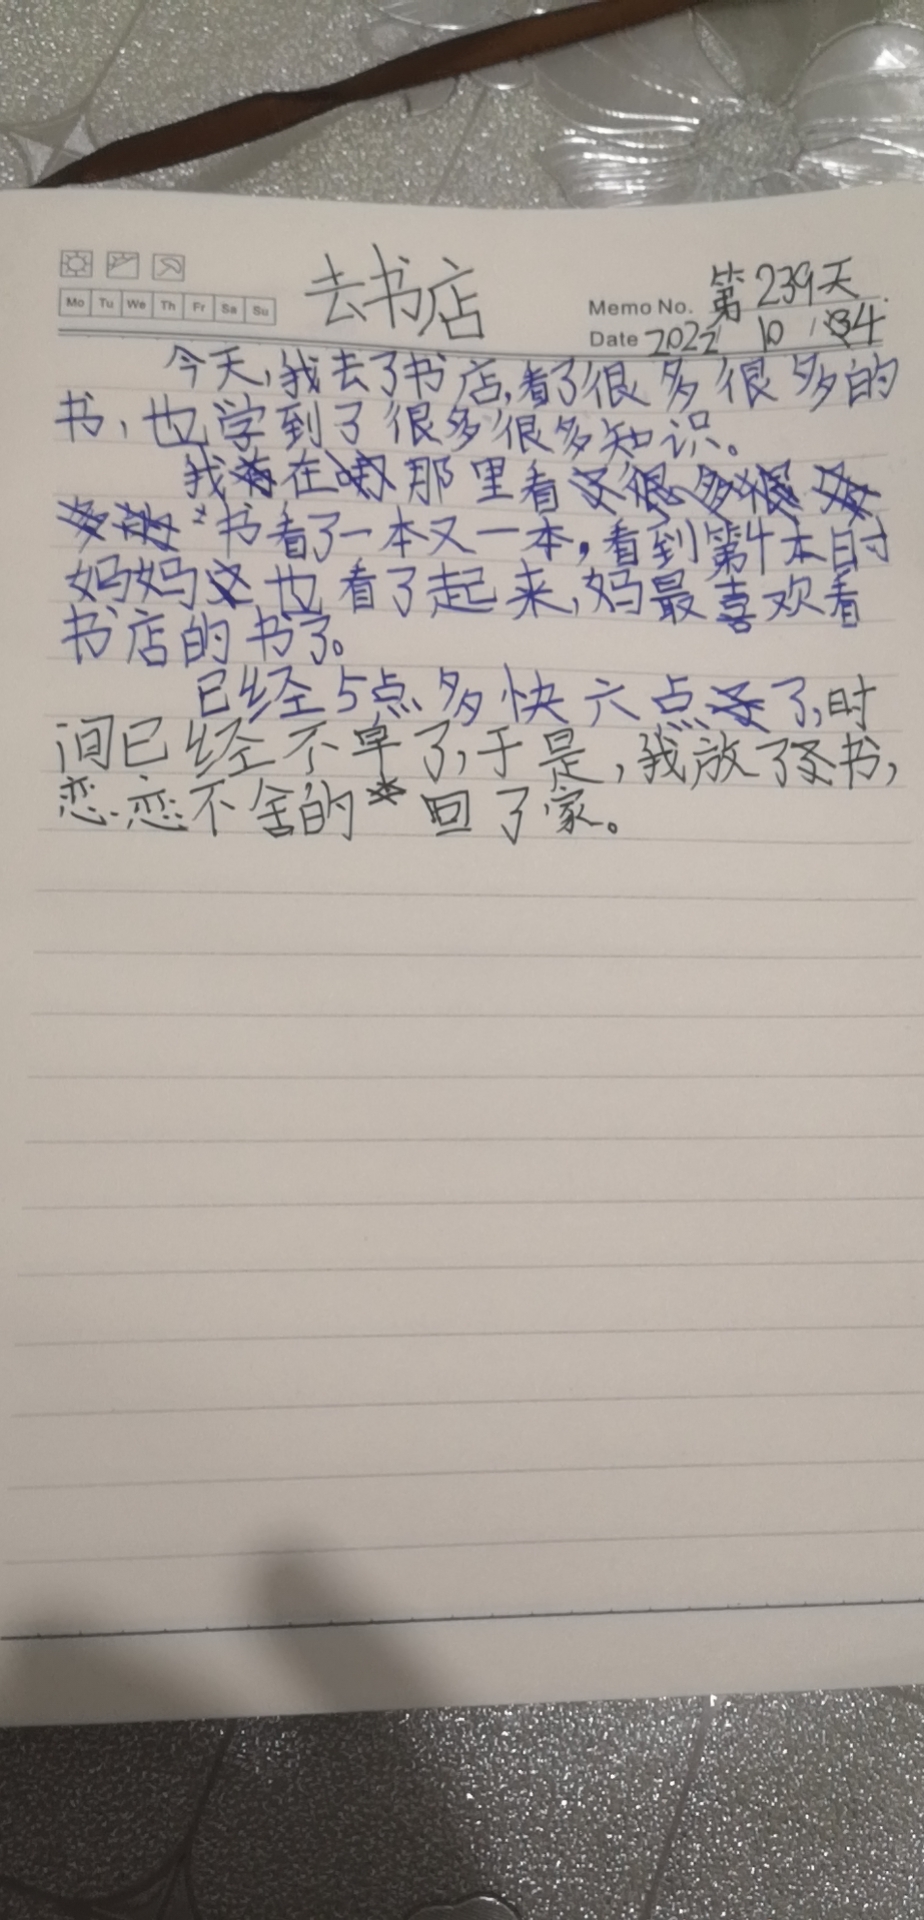 去书店
Memo No. 第239天
Mo Tu We Th Fr Sa Su
Date 2022 10 4
今天,我去了书店,看了很多很多的
书,也学到了很多很多知识。
我在那里看
书看了一本又一本,看到第4本时
妈妈也看了起来,妈最喜欢看
书店的书了。
已经5点多快六点了,时
间已经不早了,于是,我放了书,
恋恋不舍的回了家。